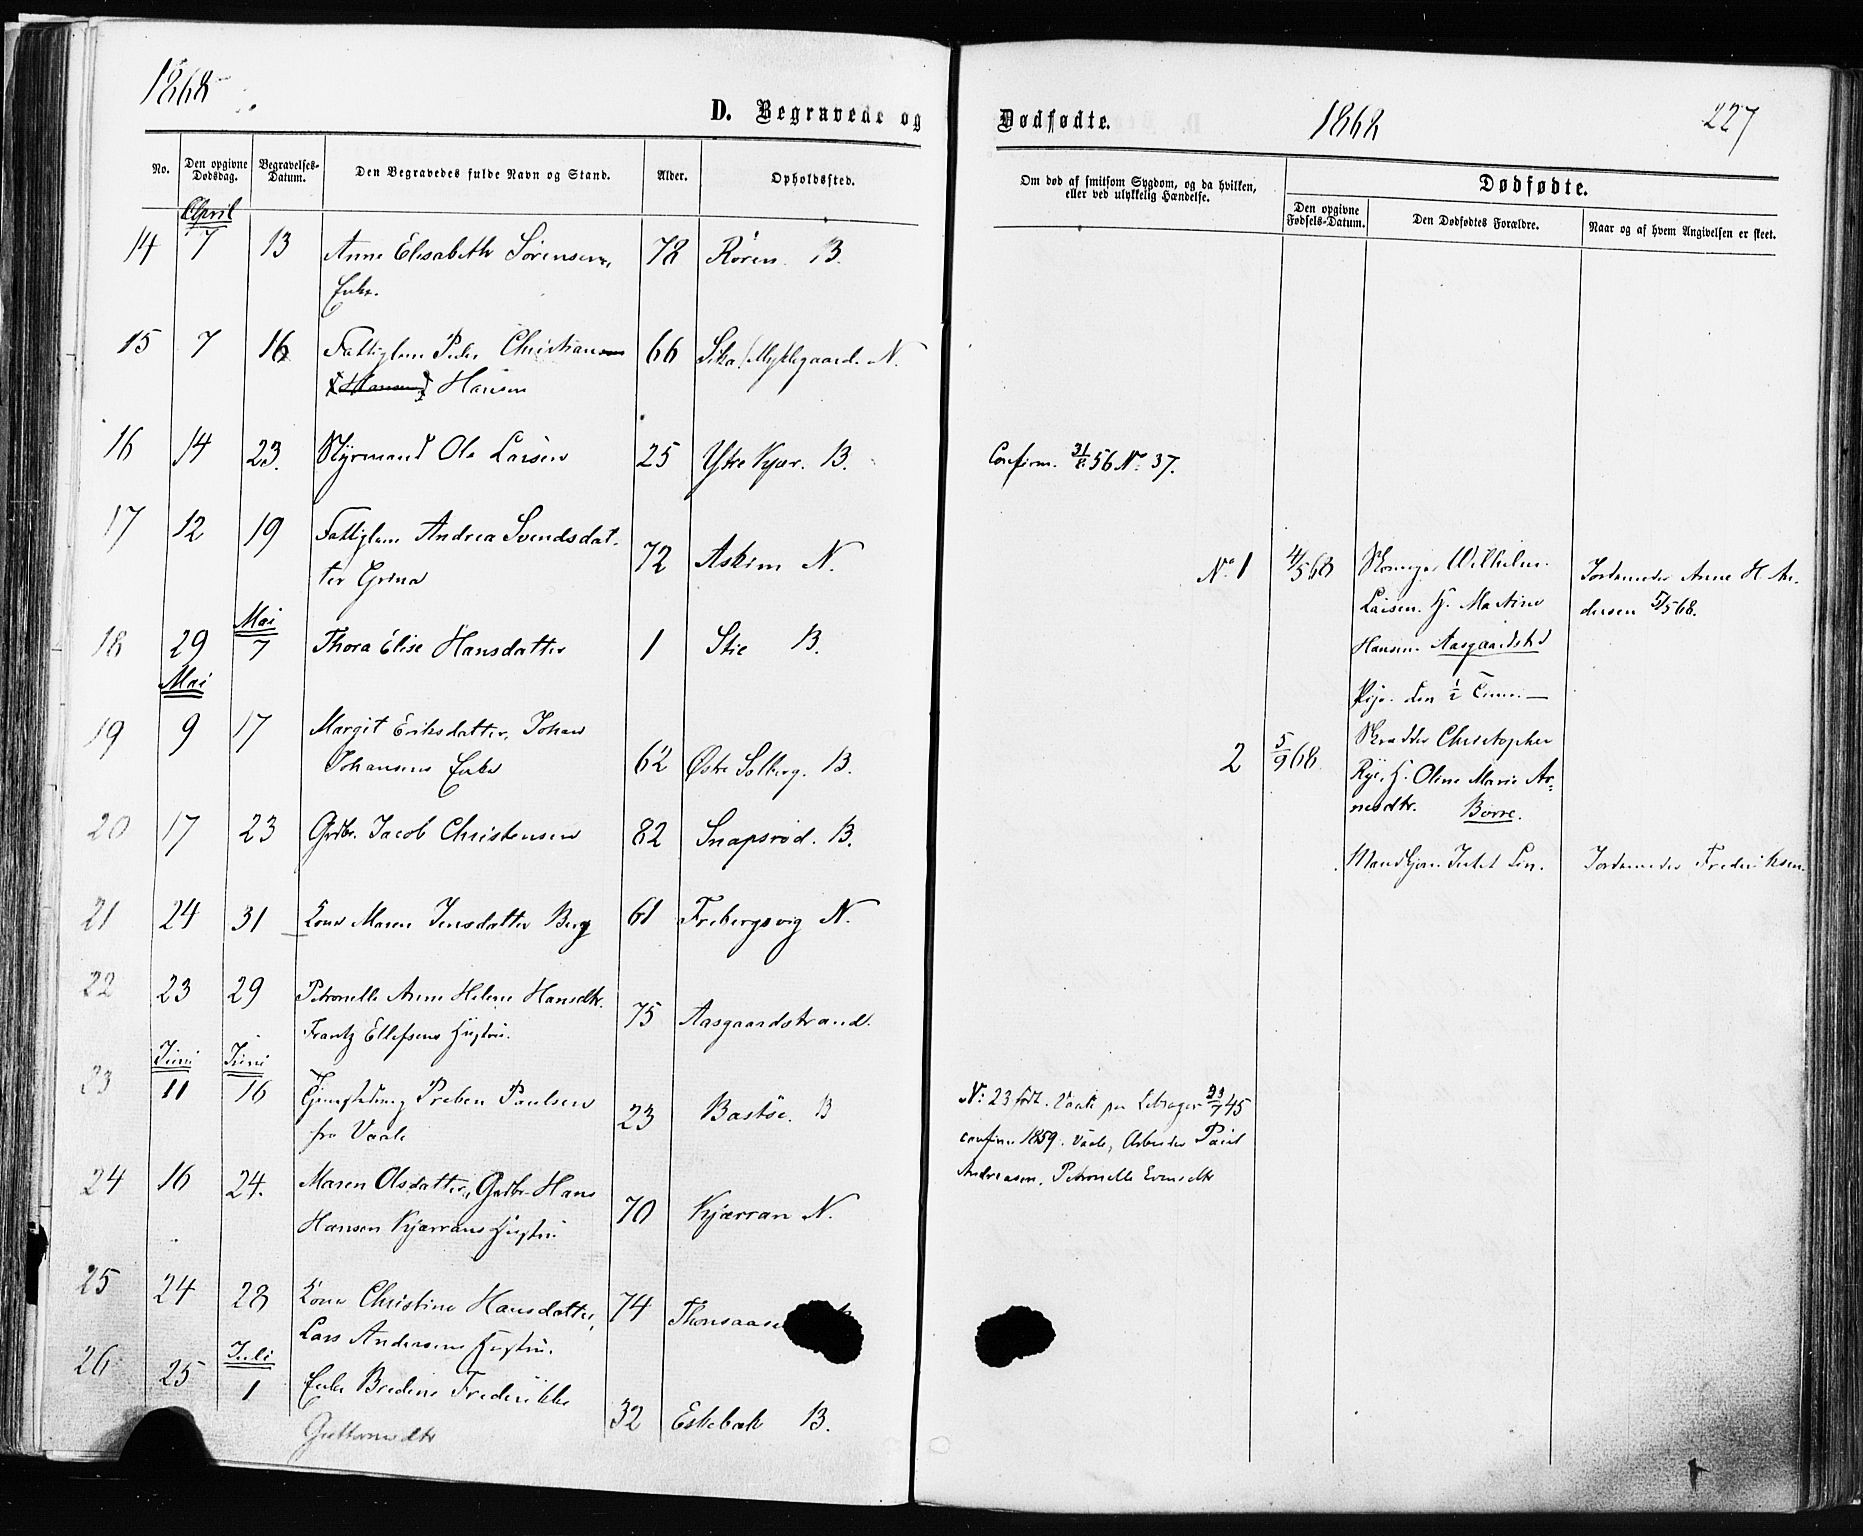 1868
D. Begravede og
No.
Den opgivne Dødsdag.
Begravelses-Datum.
Den Begravedes fulde Navn og Stand.
Alder.
Opholdssted.
April
14 7 13 Anne Elisabeth Sørensen, 78 Røren. B.
Enke.
15 7 16 Fattiglem Peder Christiansen 66 Mykkegaard. N.
Hansen
16 14 23. Styrmand Ole Larsen 25 Ytre Kjær. B.
17 12 19 Fattiglem Andrea Svendsdat- 72 Askim N.
ter
Mai
18 29 7 Thora Elise Hansdatter 1 Stie B.
Mai
19 9 17 Margit Eriksdatter, Johan
Johansens Enke 62 Østre Solberg. B.
20 17 23 Grdbr. Jacob Christensen 82 Snapsrød. B.
21 24 31 Kone Maren Jensdatter Berg 61 Frebergsvig N.
22 23 29 Petronelle Anne Helene Hansdtr.
Frantz Ellefsens Hustru. 75 Aasgaardstrand.
Juni Juni
23 11 16 Preben Paulsen 23 Bastøe. B
fra Vaale
24 16 24. Maren Olsdatter, Grdbr. Hans
Hansen Kjærrans Hustru 70 Kjærran N.
25 24 28 Kone Christine Hansdatter, 74
Lars Andersens Hustru.
Juli
26 25 1 Enke Bredine Frederikke
Guttormsdtr 32 Eskebæk B.
Dødfødte.
1868
227
Om død af smitsom Sygdom, og da hvilken,
eller ved ulykkelig Hændelse.
Dødfødte.
Den opgivne Fødsels-Datum.
Den Dødfødtes Forældre.
Naar og af hvem Angivelsen er skeet.
Confirm. 31/8 56 No. 37.
No. 1 4/5 68 Wilhelm
Larsen. H. Martine
Hansen. Aasgaardstrd
Pige. den 1/2 Time. —
Jordemoder Anne H An-
dersen 5/5 68.
2 5/9 68 Skrædder Christopher
Rye, H. Oline Marie Ar-
nesdtr. Borre.
Jordemoder Frederiksen
No: 23 født. Vaale 23/7 45
confirm 1859. Vaale, Arbeider Paul
Andreasen, Petronelle